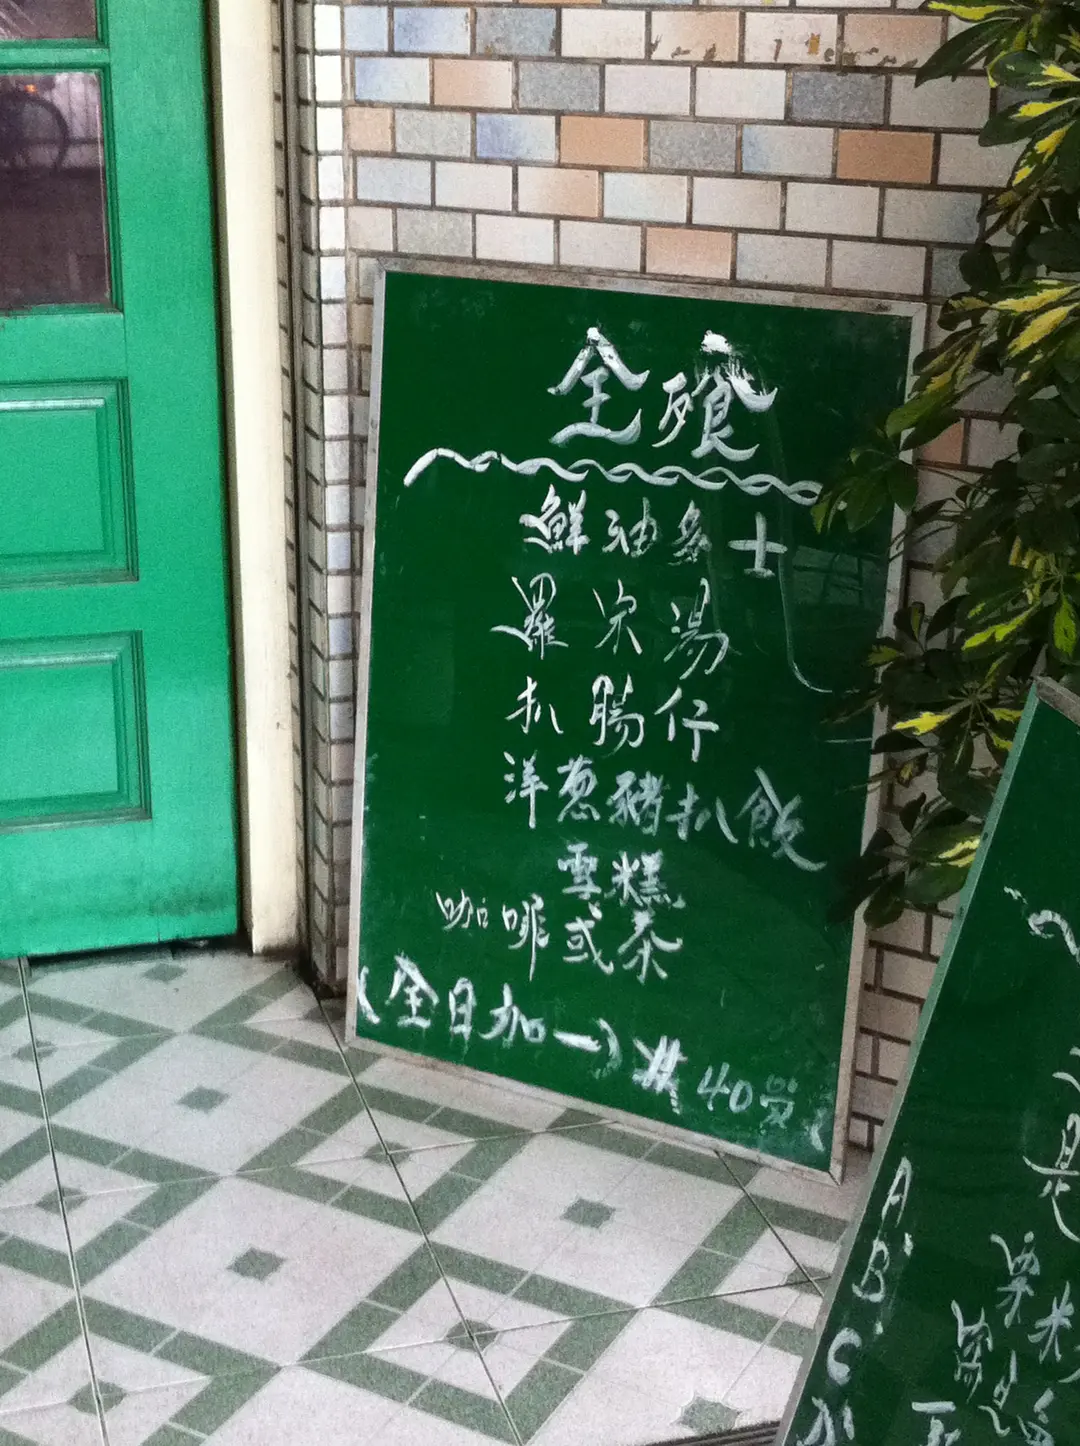 全飱
鮮油多士
羅宋湯
扒腸仔
洋葱豬扒飯
雪糕
咖啡或茶
(全日加一) 共40
A
B
C